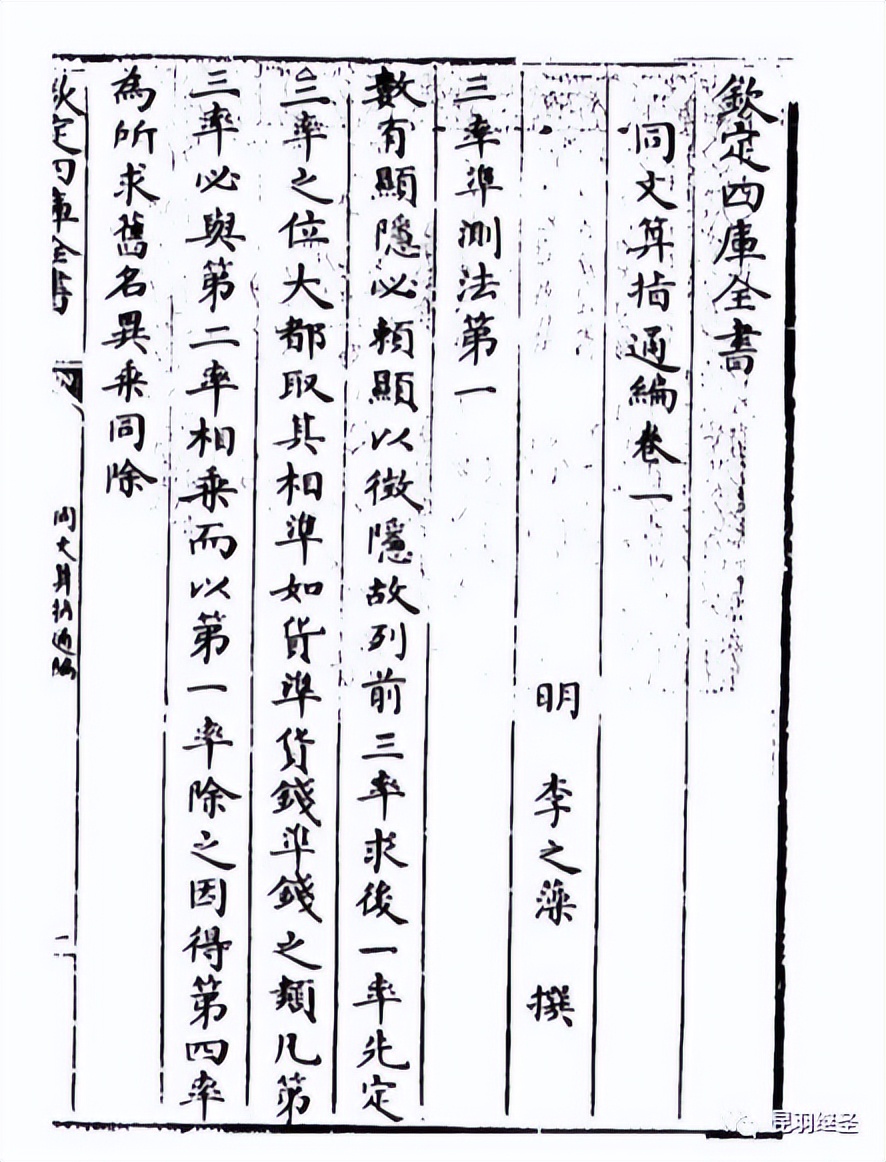 欽定四庫全書
同文算指通編卷一
明 李之藻 撰
三率準測法第一
數有顯隱必賴顯以徵隱故列前三率求後一率先定
三率之位大都取其相準如貨準貨錢準錢之類凡第
三率必與第二率相乘而以第一率除之因得第四率
為所求舊名異乘同除
欽定四庫全書
同文算指通編
一
昆羽继圣